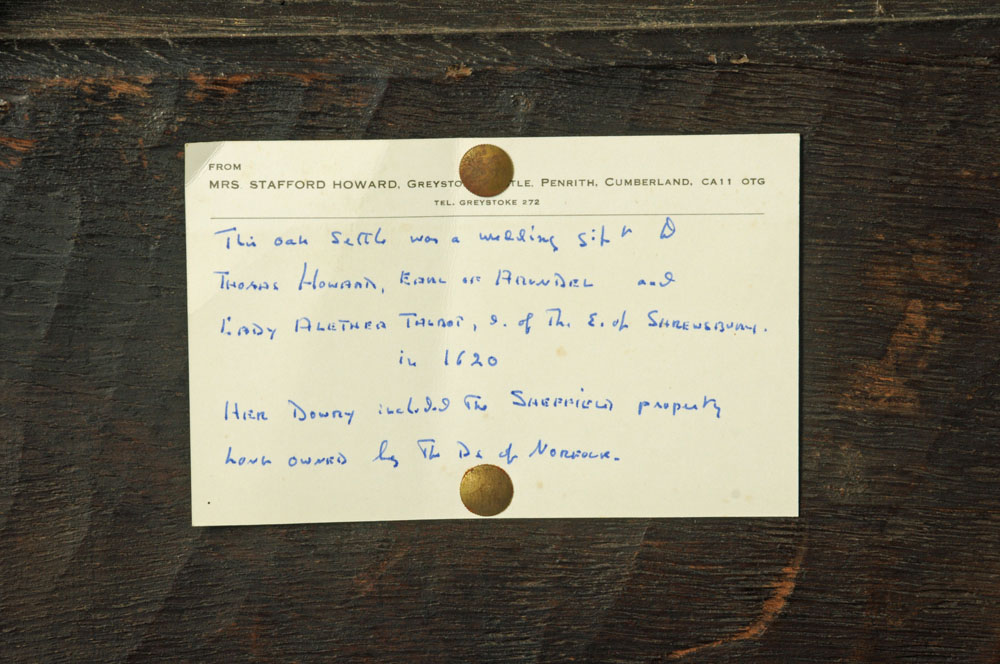 FROM
MRS STAFFORD HOWARD, GREYSTO TLE, PENRITH, CUMBERLAND, CA11 OTG
TEL. GREYSTOKE 272
This oak settle was a wedding gift to
THOMAS HOWARD, EARL OF ARUNDEL and
LADY ALETHEA TALBOT, d. of The E. of SHREWSBURY.
in 1620
HER DOWRY included The SHEFFIELD property
LONG OWNED by The Ds of NORFOLK.